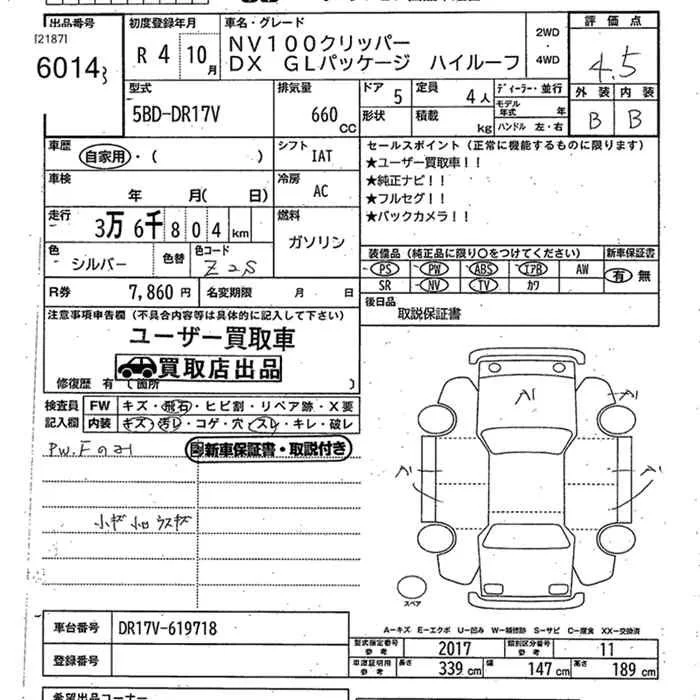 出品番号 初度登録年月 車名・グレード 2WD・4WD 評価点
[2187]
6014 R 4 10月 NV100クリッパー
DX GLパッケージ ハイルーフ 4.5
型式 排気量 ドア 5 定員 4人 ディーラー・並行 外装 内装
5BD-DR17V 660cc 形状 積載 kg モデル年式 年 ハンドル 左・右 B B
車歴 自家用・( ) シフト IAT セールスポイント (正常に機能するものに限ります)
★ユーザー買取車!!
車検 年 月( 日) 冷房 AC ★純正ナビ!!
★フルセグ!!
走行 3万6千804km 燃料 ガソリン ★バックカメラ!!
色 シルバー 色替 色コード Z2S
装備品 (純正品に限り○をつけてください) 新車保証書
PS PW ABS エアB AW 有 無
SR NV TV カワ
R券 7,860円 名変期限 月 日 後日品 取説保証書
注意事項申告欄 (不具合内容等は具体的に記入して下さい)
ユーザー買取車
買取店出品
修復歴 有 ( 箇所 )
検査員 FW キズ・飛石・ヒビ割・リペア跡・X要
記入欄 内装 キズ・汚レ・コゲ・穴・スレ・キレ・破レ
新車保証書・取説付き
スペア
車台番号 DR17V-619718
A-キズ E-エクボ U-凹み W-補修跡 S-サビ C-腐食 XX-交換済
型式指定番号 参考 2017 類別区分番号 参考 11
登録番号 車庫証明用 参考 長さ 339cm 幅 147cm 高さ 189cm
希望出品コーナー